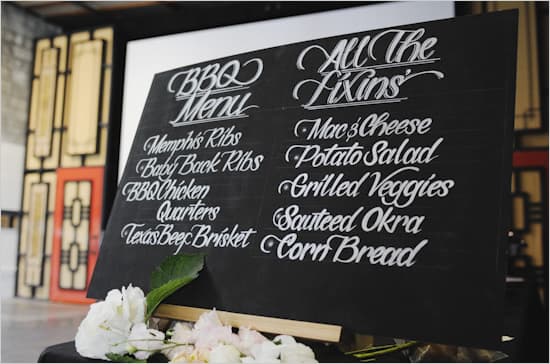 BBQ
Menu
Memphis Ribs
Baby Back Ribs
BBQ Chicken
Quarters
Texas Beef Brisket
All The
Fixins'
Mac & Cheese
Potato Salad
Grilled Veggies
Sauteed Okra
Corn Bread